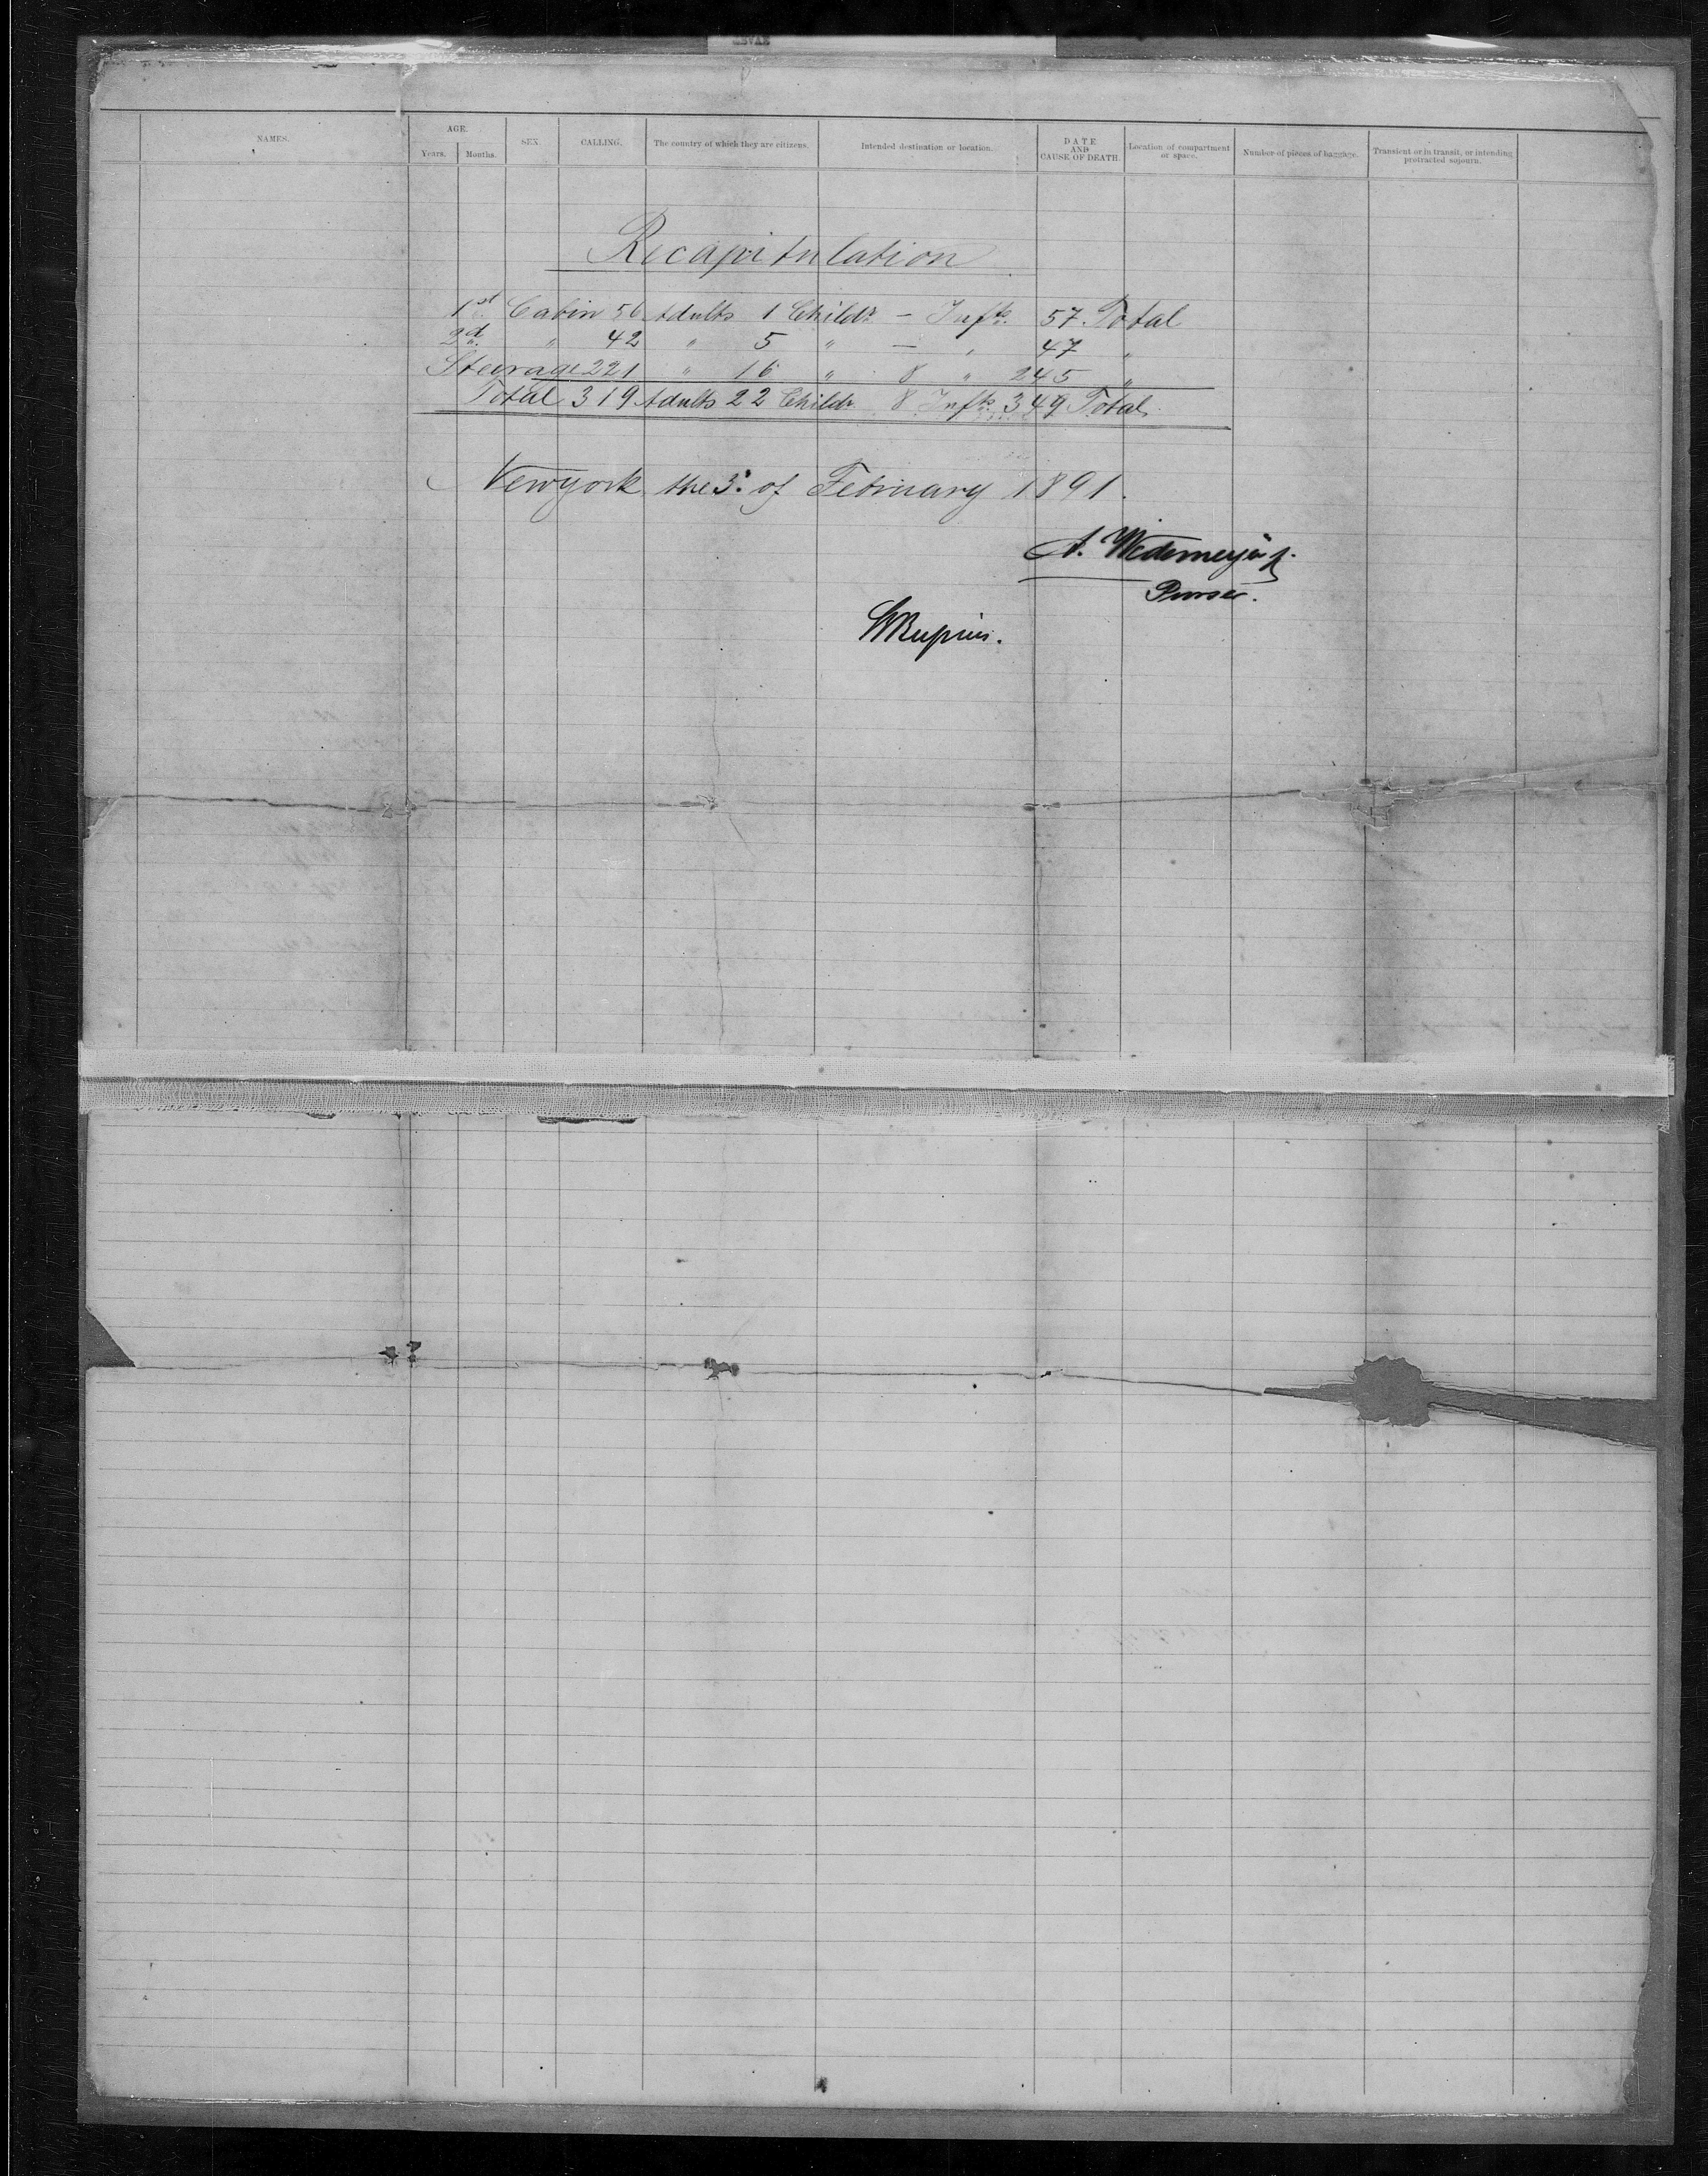 NAMES. AGE. SEX. CALLING. The country of which they are citizens. Intended destination or location. DATE AND CAUSE OF DEATH. Location of compartment or space. Number of pieces of baggage. Transient or in transit, or intending protracted sojourn.
Years. Months.
Recapitulation
1st Cabin 56 Adults 1 Childr. - Infts. 57 Total
2d. " 42 " 5 " - " 47 "
Steerage 221 " 16 " 8 " 245 "
Total 319 Adults 22 Childr 8 Infts. 349 Total
Newyork the 3. of February 1891.
A. Wedemeyer
Purser.